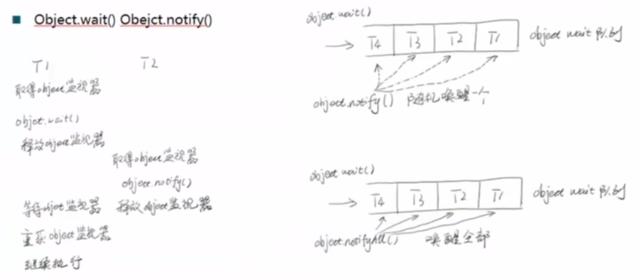 Object.wait() Obejct.notify()
T1 T2
取得object监视器
object.wait()
释放object监视器
取得object监视器
object.notify()
等待object监视器 释放object监视器
重获object监视器
继续执行
object.wait()
T4 T3 T2 T1 object wait 队列
object.notify() 随机唤醒一个
object.wait()
T4 T3 T2 T1 object wait 队列
object.notifyAll() 唤醒全部